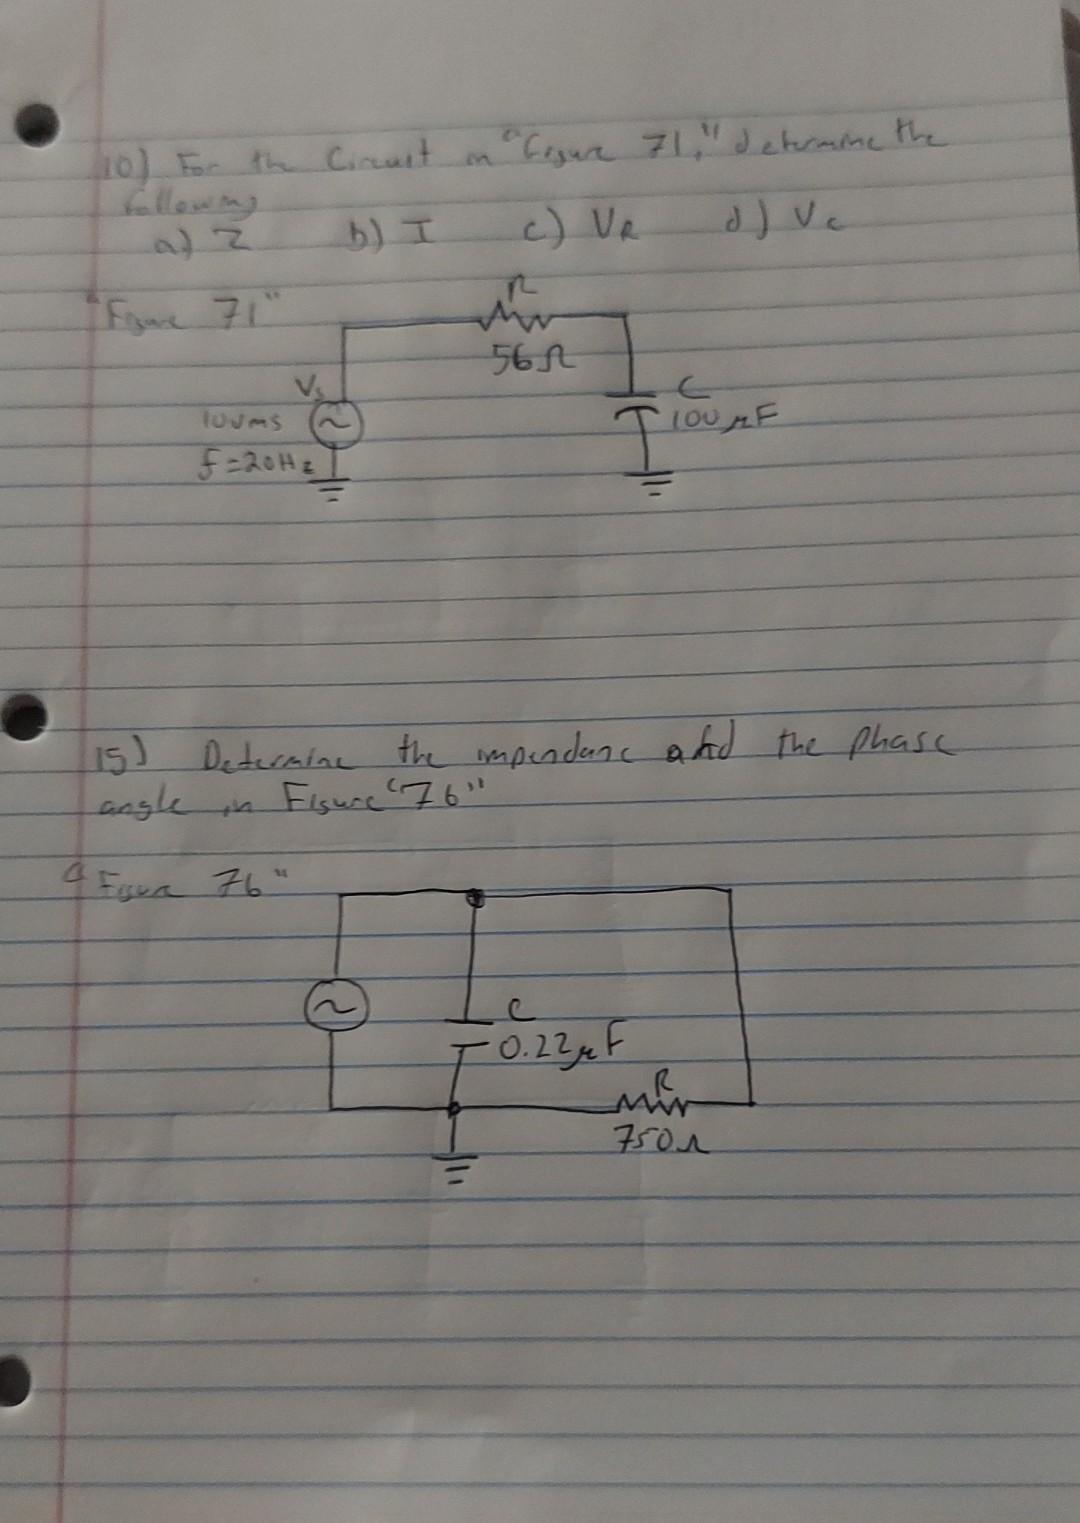 10) For the Circuit in "Figure 71," determine the
following
a) Z b) I c) VR d) Vc
"Figure 71"
R
56Ω
Vs
10Vrms
f=20Hz
C
100μF
15) Determine the impendanc and the phase
angle in Figure "76"
"Figure 76"
C
0.22μF
R
750Ω